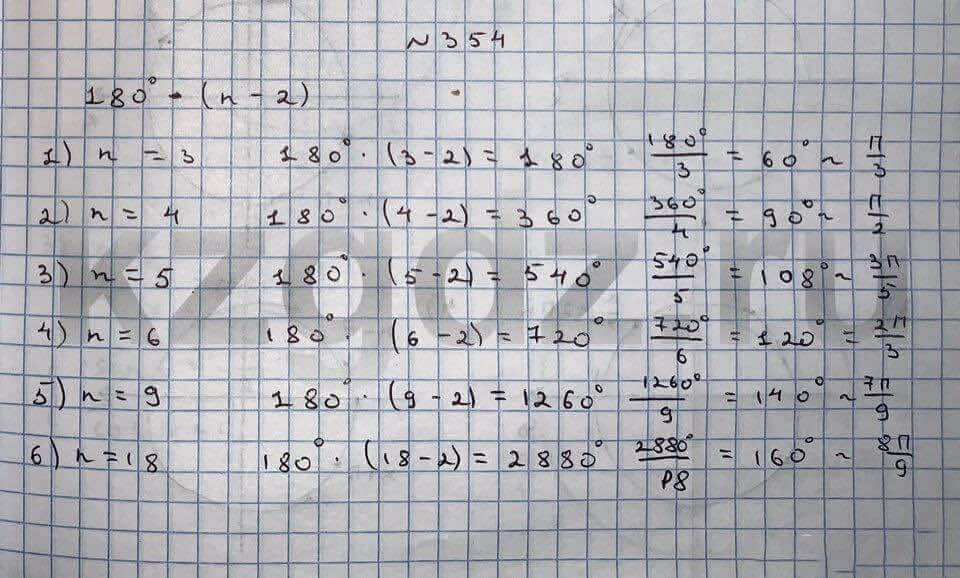 ~ 354
180° - (n - 2)
1) n = 3 180° · (3 - 2) = 180° 180°/3 = 60° ~ π/3
2) n = 4 180° · (4 - 2) = 360° 360°/4 = 90° ~ π/2
3) n = 5 180° · (5 - 2) = 540° 540°/5 = 108° ~ 3π/5
4) n = 6 180° · (6 - 2) = 720° 720°/6 = 120° = 2π/3
5) n = 9 180° · (9 - 2) = 1260° 1260°/9 = 140° ~ 7π/9
6) n = 18 180° · (18 - 2) = 2880° 2880°/18 = 160° ~ 8π/9
kzgdz.ru